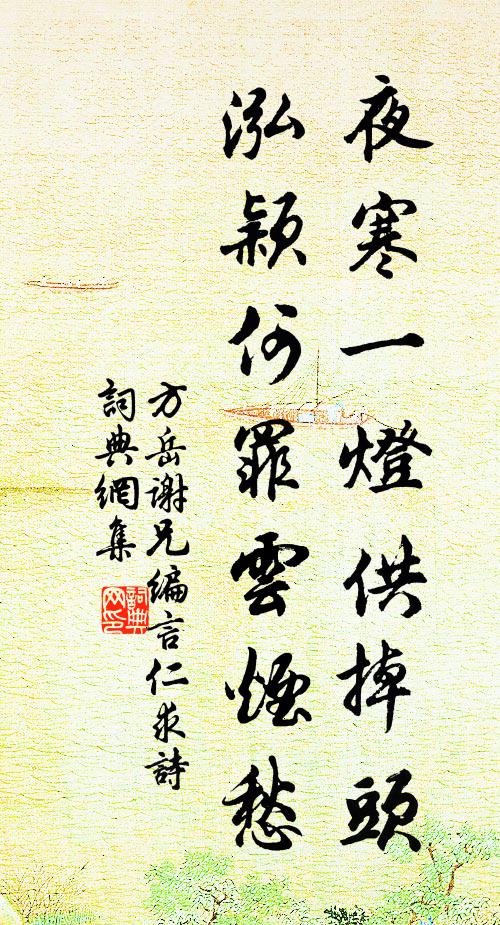 夜寒一燈供掉頭
泓潁何罪雲煙愁
方岳谢兄编言仁求詩
詞典網集
詞典
网印